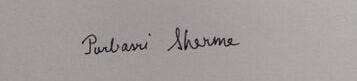 Purbasri Sherme